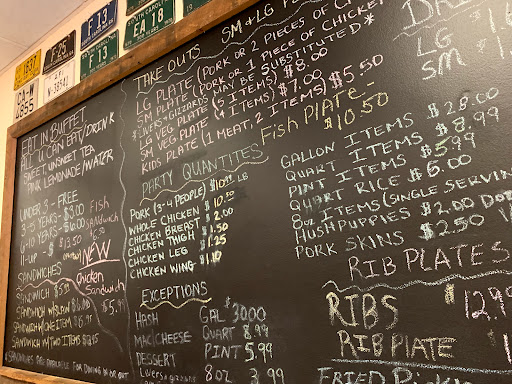 1837
F·25
F·13
F·13
EA 18
CA·W
4855
N·38541
EAT IN BUFFET
ALL U CAN EAT/DRINK
SWEET, UNSWEET TEA
PINK LEMONADE/WATER
UNDER 3 - FREE
3-5 YEARS - $3.00
6-10 YEARS - $6.00
11-UP - $13.50
Fish
Sandwich
6.50
NEW
Chicken
Sandwich
$5.99
SANDWICHES
SANDWICH $5.59
SANDWICH W/SLAW $6.00
SANDWICH W/ONE ITEM
SANDWICH W/TWO ITEMS
TAKE OUTS
SM & LG
LG PLATE (PORK OR 2 PIECES OF
SM PLATE (PORK OR 1 PIECE OF CHICKEN
*LIVERS + GIZZARDS MAY BE SUBSTITUTED*
LG VEG PLATE (5 ITEMS) $8.00
SM VEG PLATE (4 ITEMS) $7.00
KIDS PLATE (1 MEAT, 2 ITEMS) $5.50
FISH PLATE
$10.50
PARTY QUANTITIES
PORK (3-4 PEOPLE) LB
WHOLE CHICKEN $10.50
CHICKEN BREAST $2.00
CHICKEN THIGH $1.50
CHICKEN LEG $1.25
CHICKEN WING $1.10
EXCEPTIONS
HASH
MAC|CHEESE
DESSERT
Livers & gizzards
GAL $3000
QUART 8.99
PINT 5.99
8OZ 3.99
LG
SM
GALLON ITEMS $28.00
QUART ITEMS $8.99
PINT ITEMS $5.99
QUART RICE $6.00
8OZ ITEMS (SINGLE SERVIN
HUSHPUPPIES $2.00
PORK SKINS $2.50
RIB PLATES
RIBS $12.79
RIB PLATE
FRIED